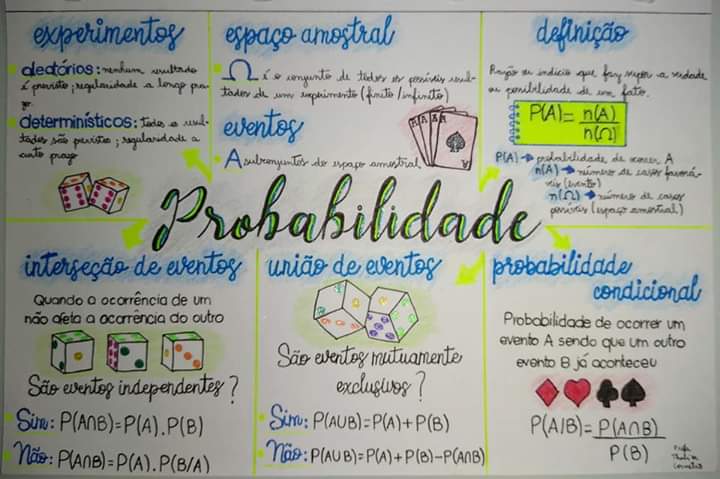 experimentos
aleatórios: nenhum resultado
é previsto; regularidade a longo pra-
zo.
determinísticos: todos os resul-
tados são previstos; regularidade a
curto prazo
espaço amostral
Ω é o conjunto de todos os possíveis resul-
tados de um experimento (finito/infinito)
eventos
A subconjuntos do espaço amostral
definição
Razão ou indício que faz supor a verdade
ou possibilidade de um fato.
P(A) = n(A)
n(Ω)
P(A) → probabilidade de ocorrer A
n(A) → número de casos favorá-
veis (evento)
n(Ω) → número de casos
possíveis (espaço amostral)
A A A A
Probabilidade
interseção de eventos
Quando a ocorrência de um
não afeta a ocorrência do outro
São eventos independentes?
Sim: P(A∩B)=P(A).P(B)
Não: P(A∩B)=P(A).P(B/A)
união de eventos
São eventos mutuamente
exclusivos?
Sim: P(A∪B)=P(A)+P(B)
Não: P(A∪B)=P(A)+P(B)-P(A∩B)
probabilidade
condicional
Probabilidade de ocorrer um
evento A sendo que um outro
evento B já aconteceu
P(A/B)= P(A∩B)
P(B)